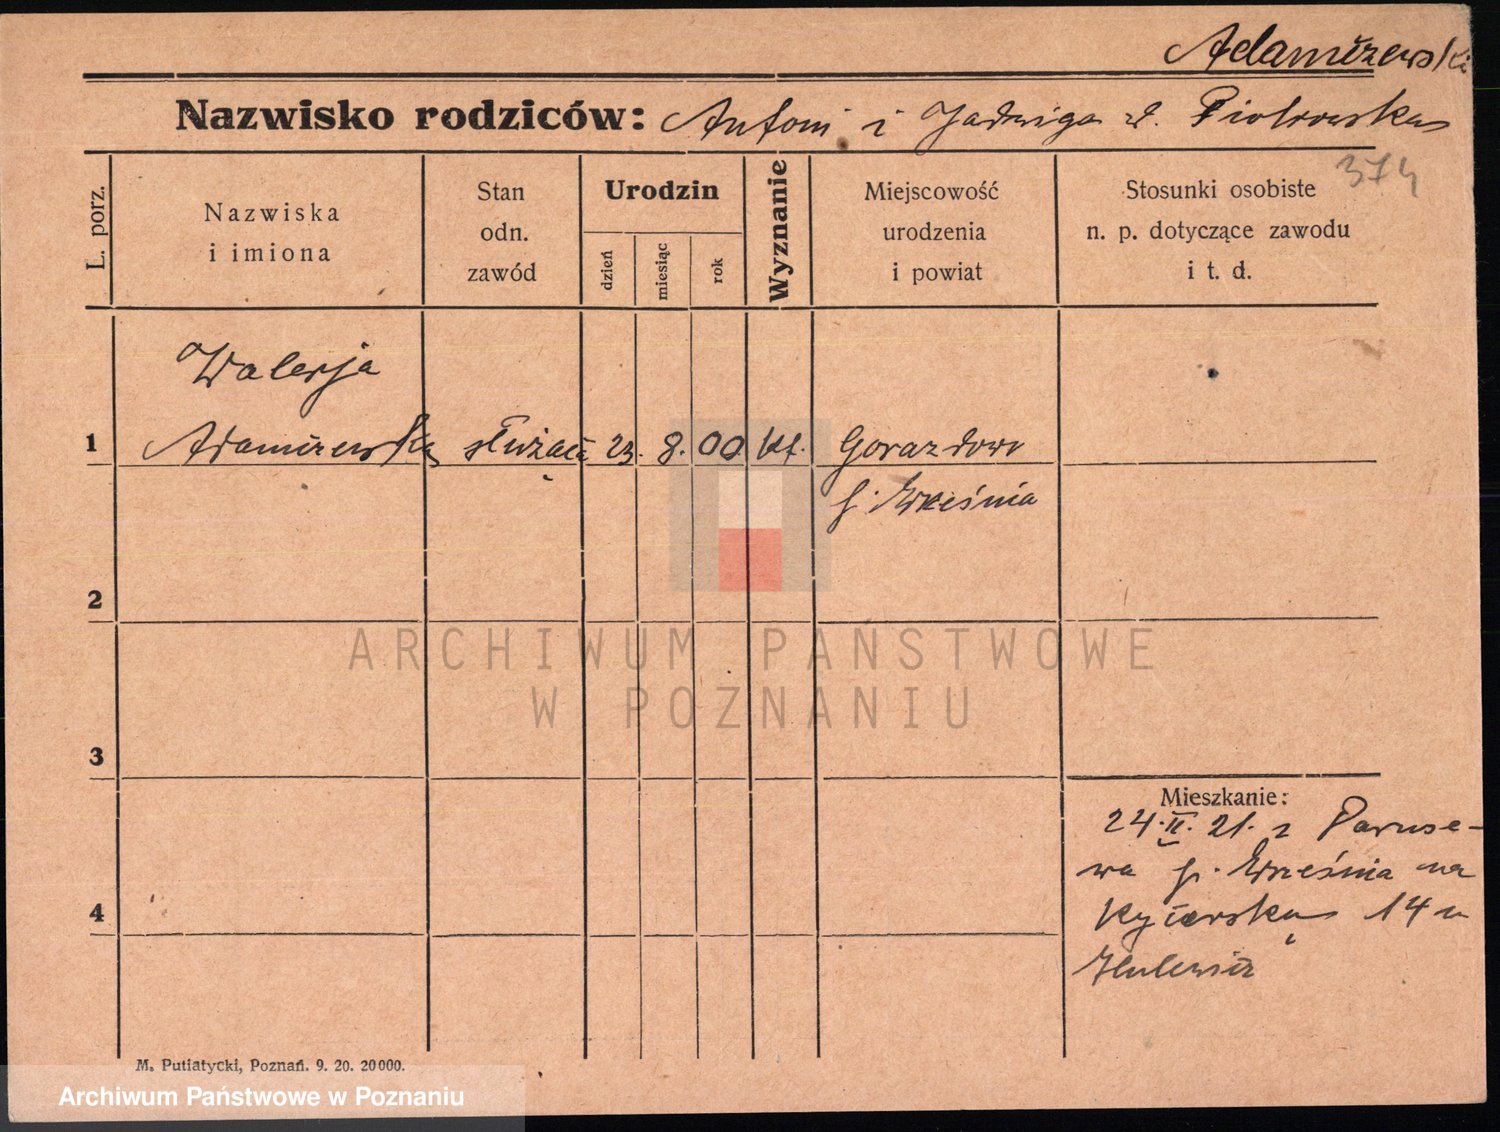 Adamczewski
Nazwisko rodziców: Antoni i Jadwiga z d. Piotrowska
374
L. porz.
Nazwiska
i imiona
Stan
odn.
zawód
Urodzin
dzień
miesiąc
rok
Wyznanie
Miejscowość
urodzenia
i powiat
Stosunki osobiste
n. p. dotyczące zawodu
i t. d.
Walerja
1 Adamczewska służąca 23. 8. 00 kt. Gorazdowo
p. Września
2
ARCHIWUM PAŃSTWOWE
W POZNANIU
3
Mieszkanie:
24.II.21. z Paruse-
wa p. Września na
14 u
4
M. Putiatycki, Poznań. 9. 20. 20000.
Archiwum Państwowe w Poznaniu